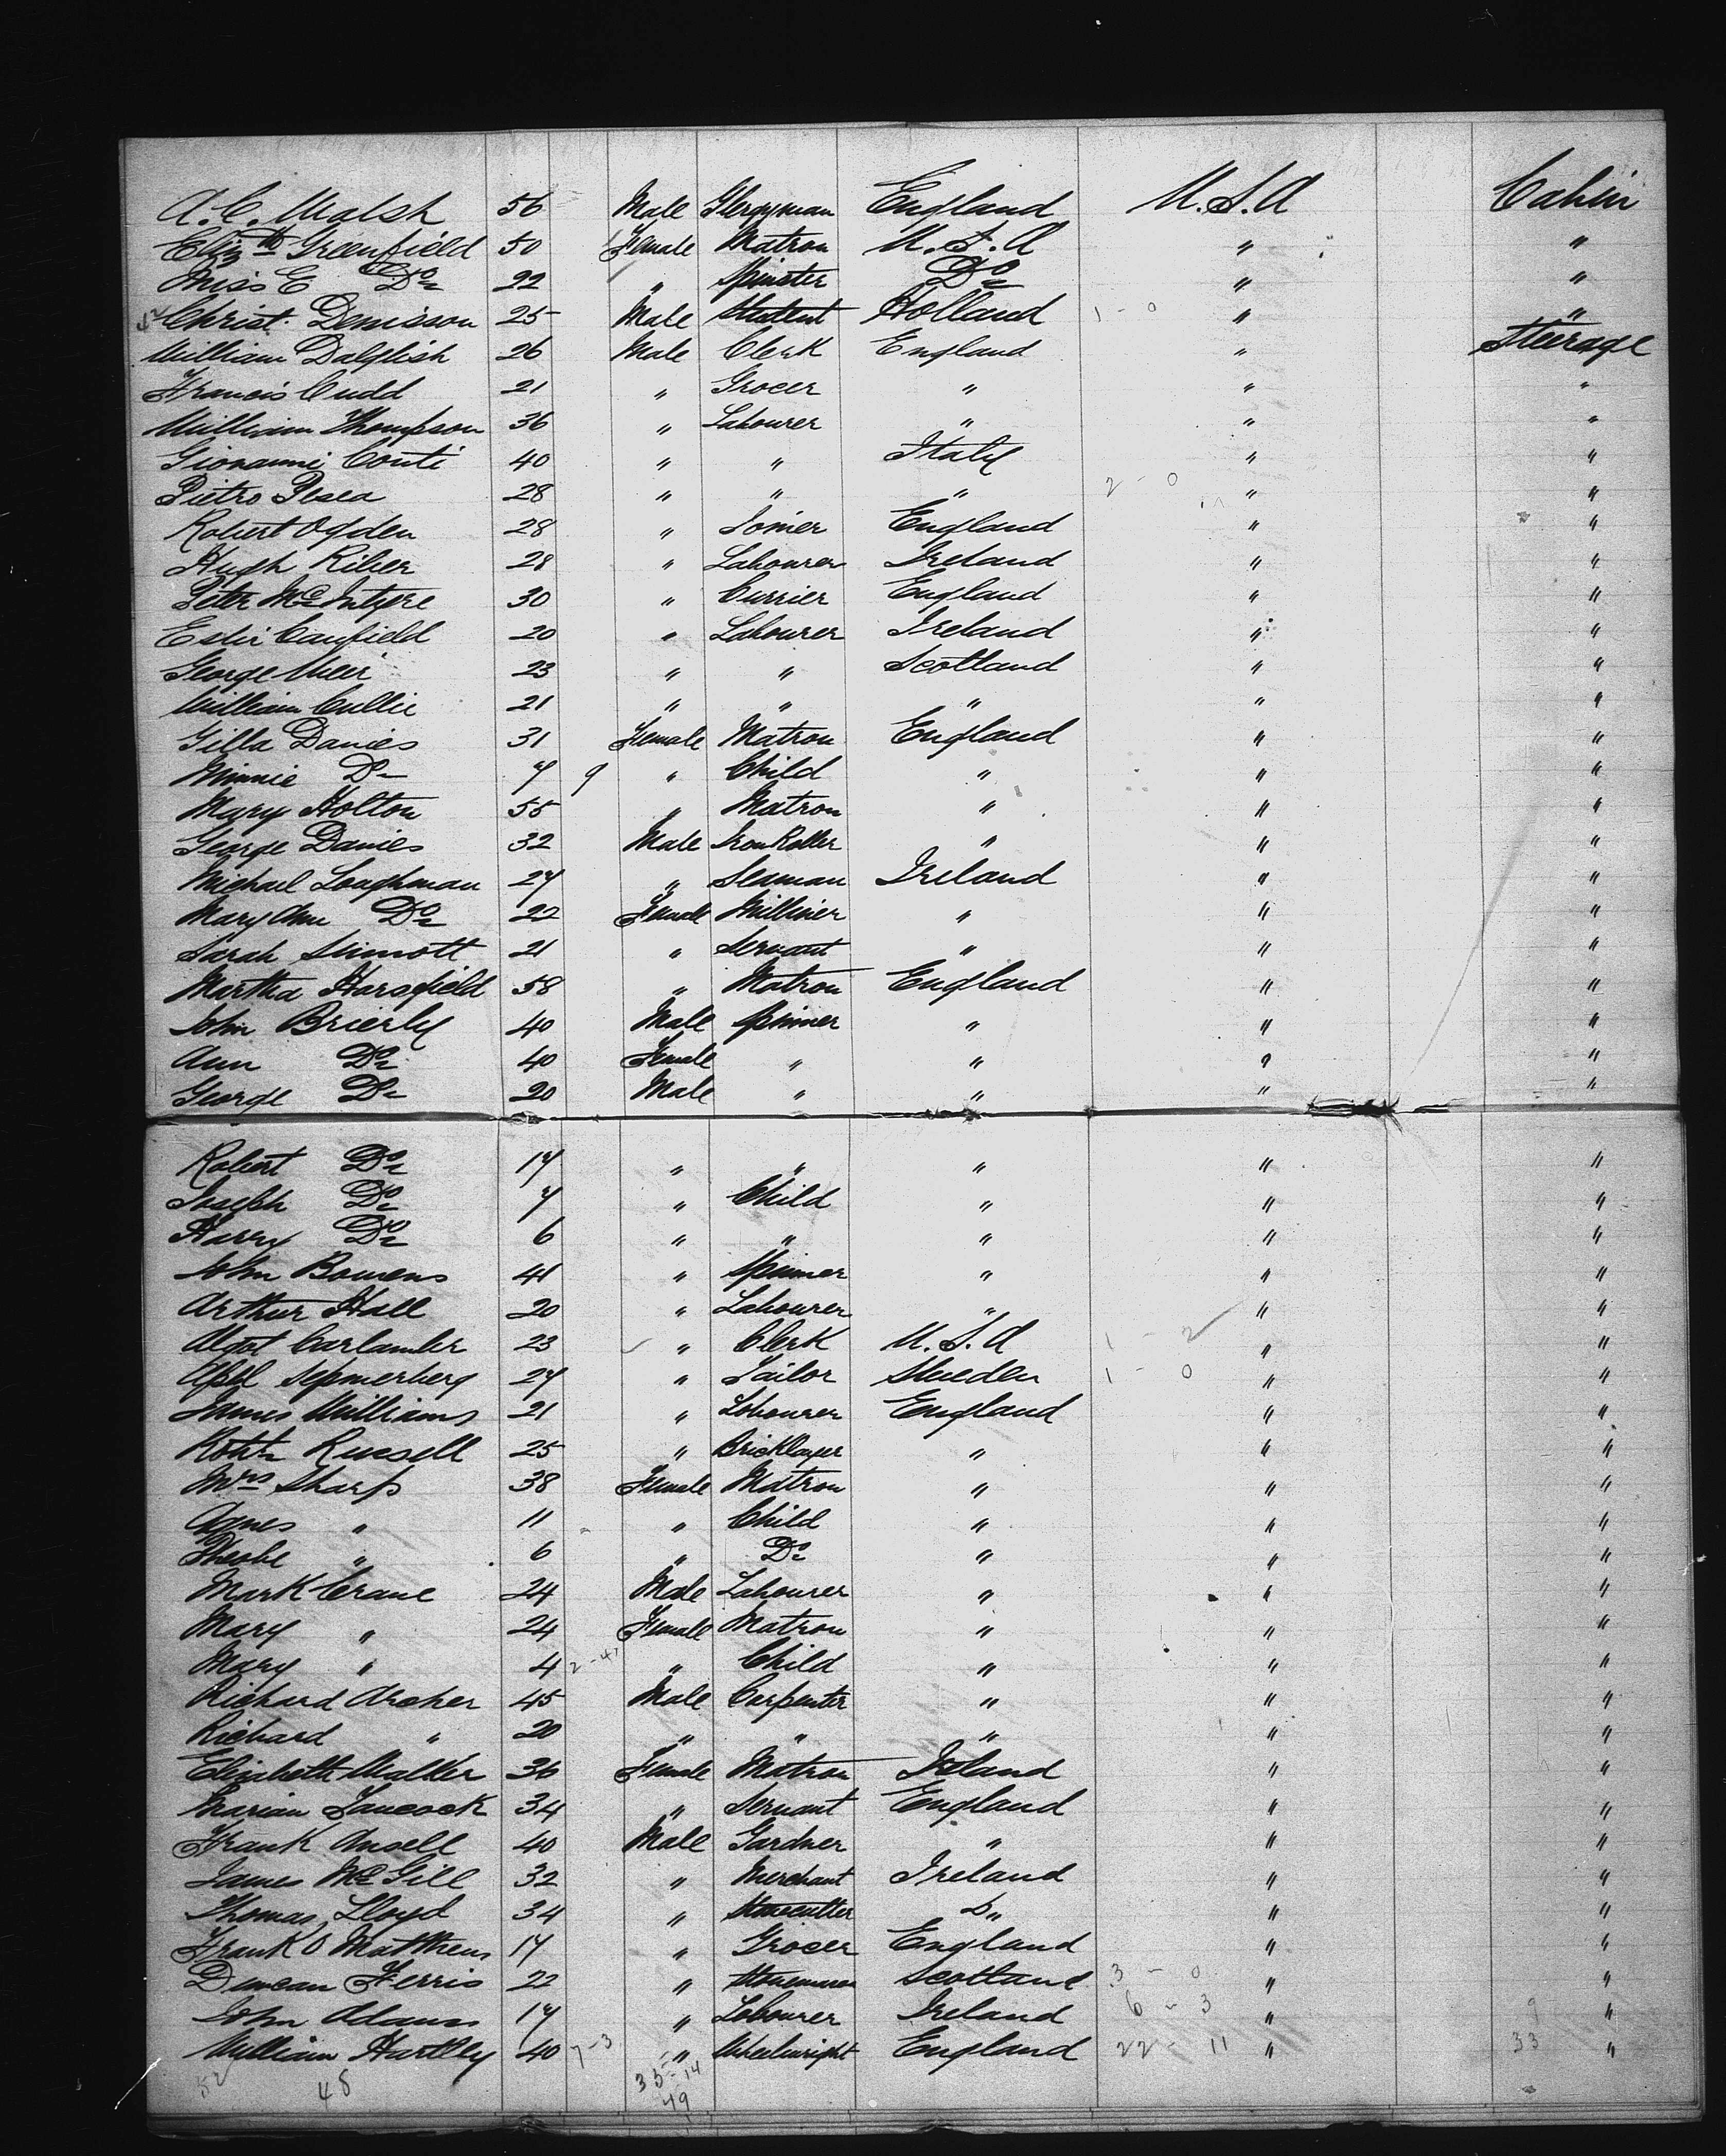 A. C. Walsh 56 Male Clergyman England U.S.A Cabin
Elizth Greenfield 50 Female Matron U.S.A " "
Miss E Do 22 " Spinster Do " "
Christ. Denisson 25 Male Student Holland 1 - 0 " "
William Dalglish 26 Male Clerk England " Steerage
Francis Cudd 21 " Grocer " " "
William Thompson 36 " Labourer " " "
Giovanni Conti 40 " " Italy " "
Pietro 28 " " " 2 - 0 " "
Robert Ogden 28 " Joiner England " "
Hugh Riley 28 " Labourer Ireland " "
Peter McIntyre 30 " Currier England " "
Canfield 20 " Labourer Ireland " "
George Weir 23 " " Scotland " "
William Cullie 21 " " " " "
Gilla Davies 31 Female Matron England " "
Minnie Do 7 9 " Child " " "
Mary Holton 55 " Matron " " "
George Davies 32 Male Iron Roller " " "
Michael Loaghman 27 " Seaman Ireland " "
Mary Ann Do 22 Female Milliner " " "
Sarah Sinnott 21 " Servant " " "
Martha Horsefield 58 " Matron England " "
John Brierly 40 Male Spinner " " "
Ann Do 40 Female " " " "
George Do 20 Male " " " "
Robert Do 17 " " " " "
Joseph Do 7 " Child " " "
Harry Do 6 " " " " "
John Bowens 41 " Spinner " " "
Arthur Hall 20 " Labourer " " "
Algot 23 " Clerk U.S.A 1 - 2 " "
27 " Tailor Sweden 1 0 " "
James Williams 21 " Labourer England " "
Robt Russell 25 " Bricklayer " " "
Mrs Sharp 38 Female Matron " " "
Agnes " 11 " Child " " "
Pheobe " 6 " Do " " "
Mark Crane 24 Male Labourer " " "
Mary " 24 Female Matron " " "
Mary " 4 " Child " " "
Richard Archer 45 Male Carpenter " " "
Richard " 20 " " " " "
Elizabeth Walker 36 Female Matron Ireland " "
Marian Lancock 34 " Servant England " "
Frank Ansell 40 Male Gardner " " "
James McGill 32 " Merchant Ireland " "
Thomas Lloyd 34 " Stonecutter Do " "
Frank O Matthews 17 " Grocer England " "
Duncan Ferris 22 " Stonemason Scotland 3 - 0 " "
John Adams 17 " Labourer Ireland 6 - 3 " 9 "
William Hartley 40 7-3 " Wheelwright England 22 - 11 " 33 "
52 48 35-14
49